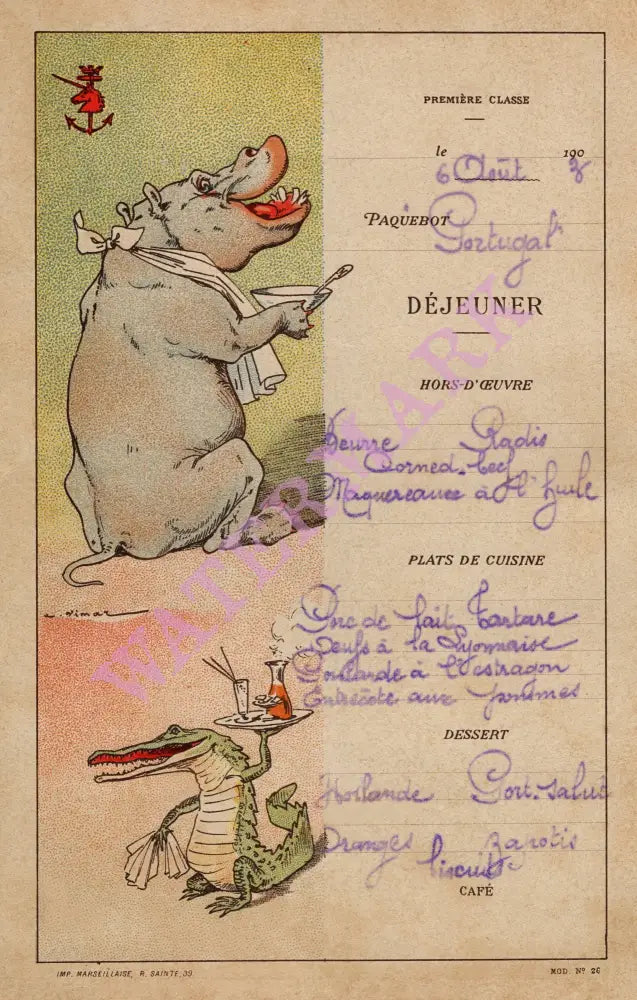 PREMIÈRE CLASSE
le 6 Août 1903
PAQUEBOT "Portugal"
DÉJEUNER
HORS-D'ŒUVRE
Beurre Radis
Corned-beef
Maquereaux à l'huile
PLATS DE CUISINE
Porc de lait Tartare
Oeufs à la Lyonnaise
Poularde à l'estragon
Entrecôte aux pommes
DESSERT
Hollande Port-Salut
Oranges
biscuits
CAFÉ
WATERMARK
IMP. MARSEILLAISE, R. SAINTE, 39.
MOD. Nº 26